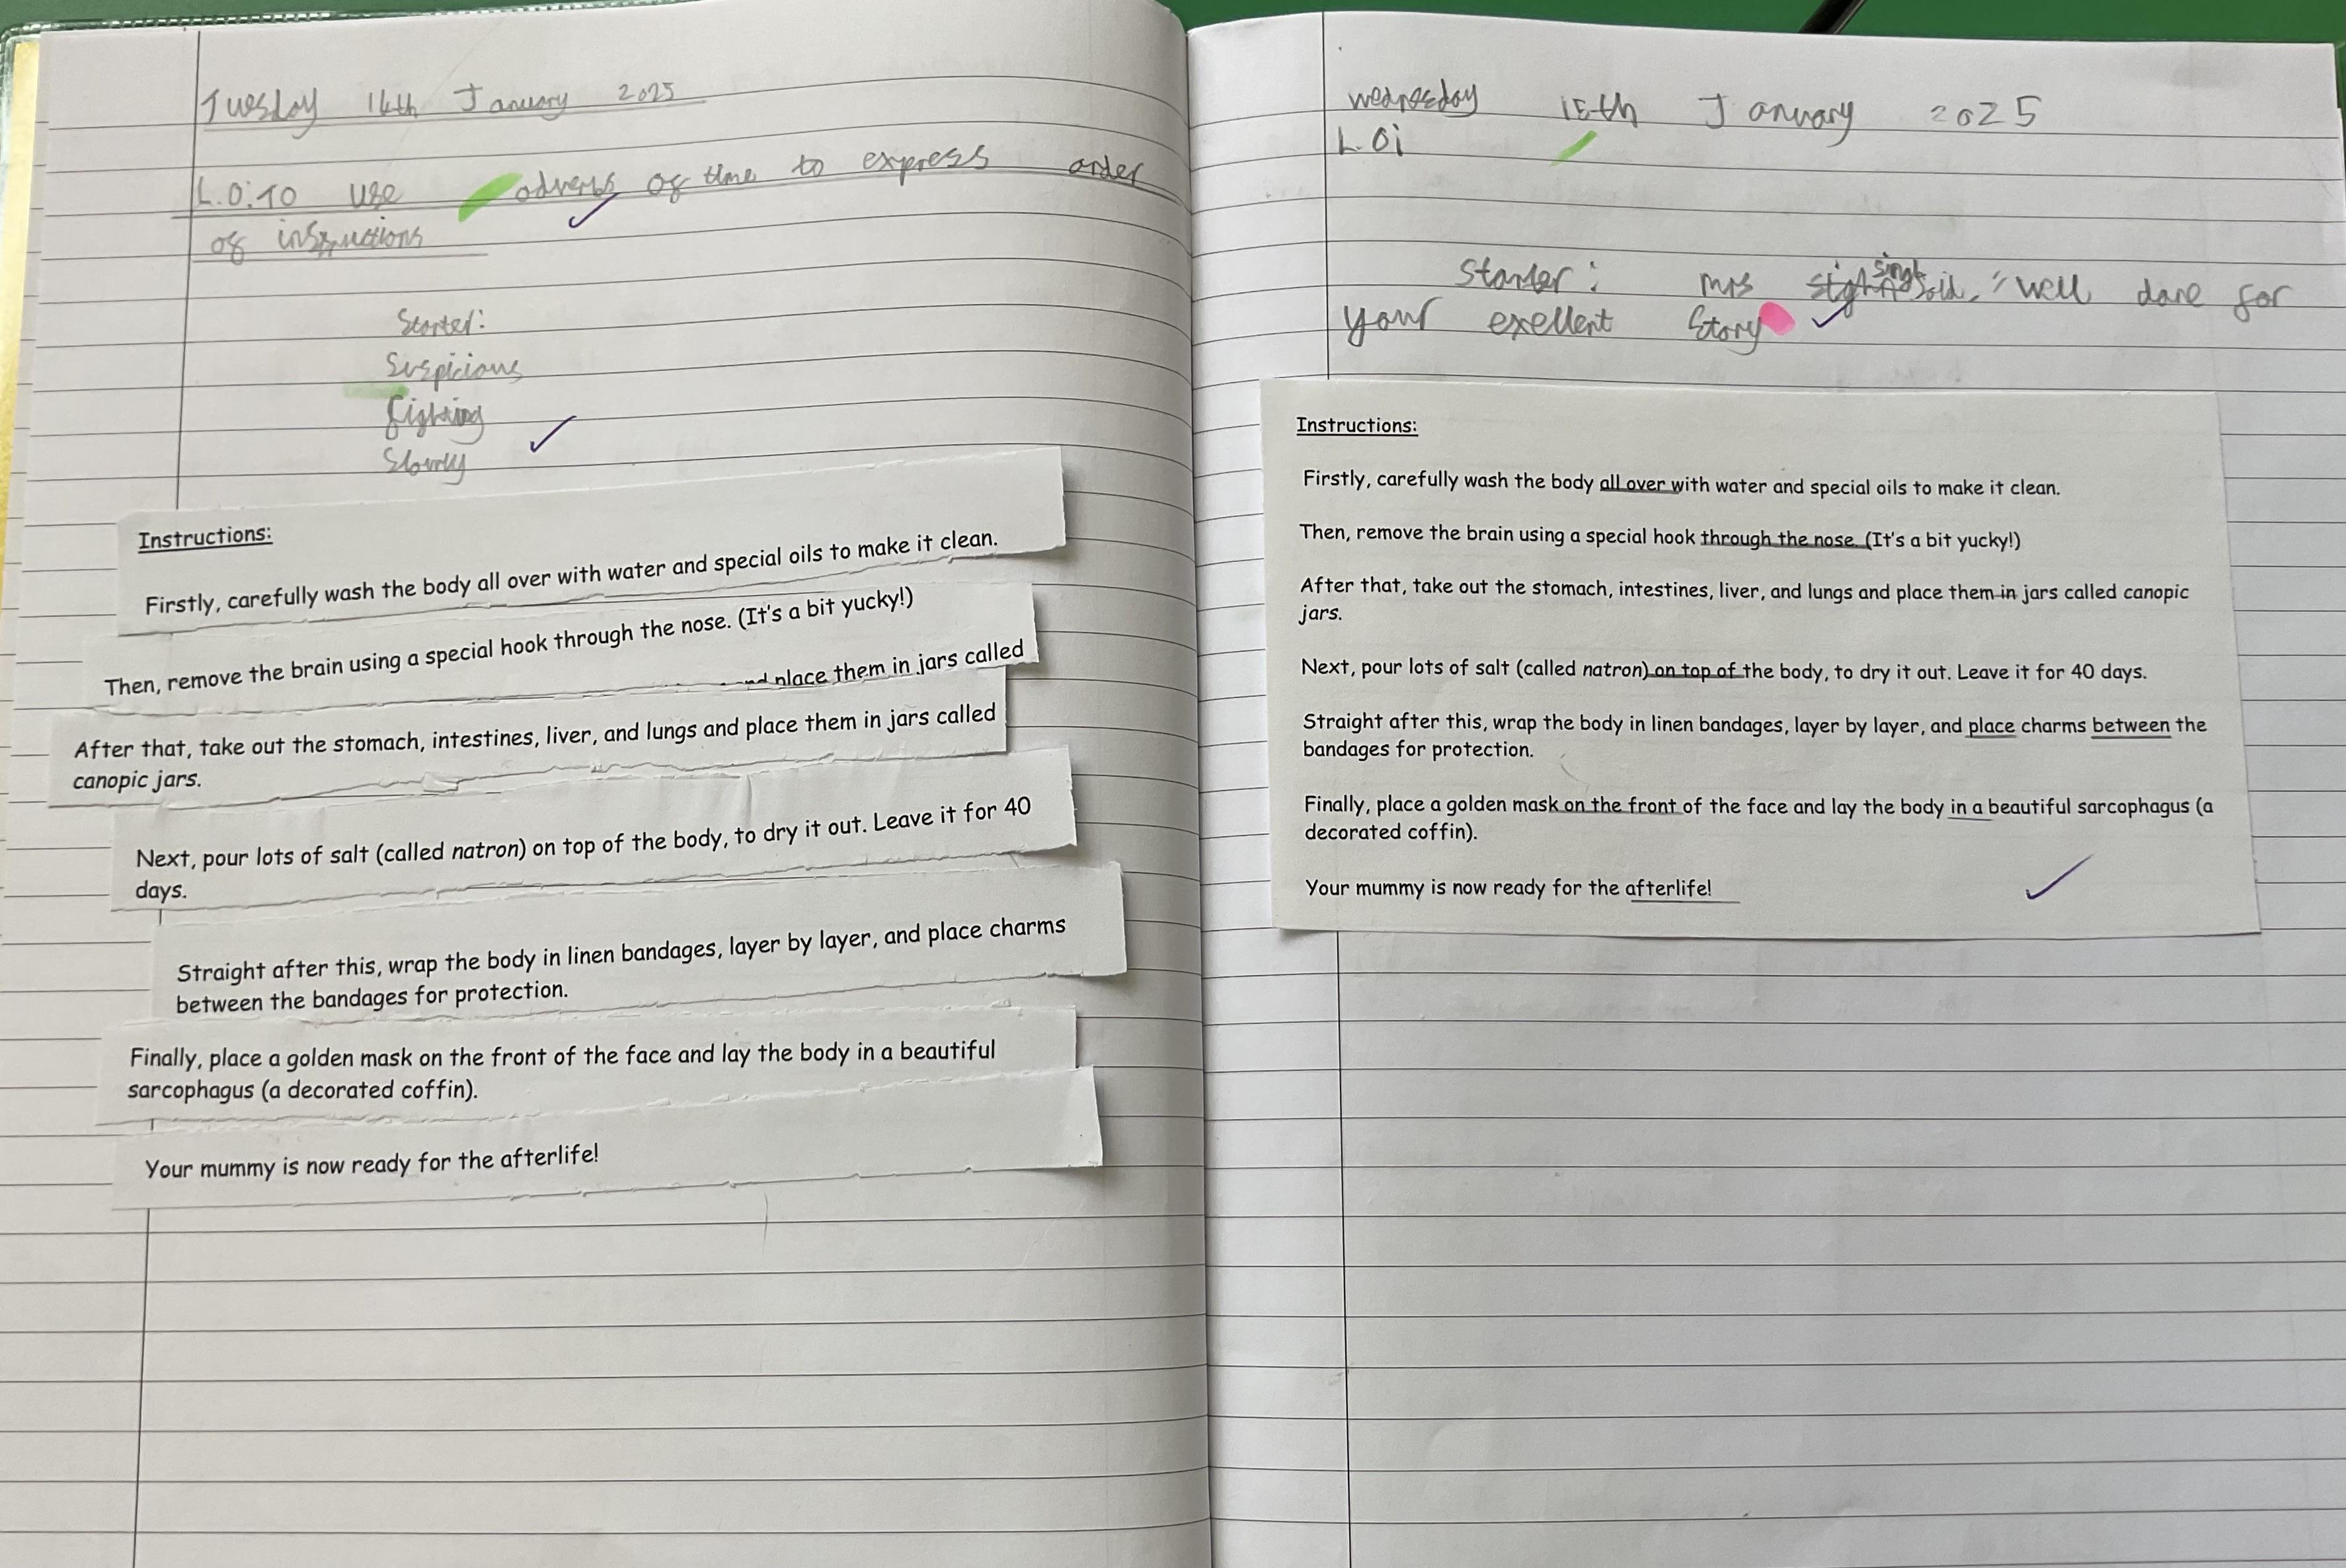 Tuesday 14th January 2025
L.O: To use adverbs of time to express order
of instructions
Starter:
Suspicious
fighting
Slowly
Instructions:
Firstly, carefully wash the body all over with water and special oils to make it clean.
Then, remove the brain using a special hook through the nose. (It's a bit yucky!)
and place them in jars called
After that, take out the stomach, intestines, liver, and lungs and place them in jars called
canopic jars.
Next, pour lots of salt (called natron) on top of the body, to dry it out. Leave it for 40
days.
Straight after this, wrap the body in linen bandages, layer by layer, and place charms
between the bandages for protection.
Finally, place a golden mask on the front of the face and lay the body in a beautiful
sarcophagus (a decorated coffin).
Your mummy is now ready for the afterlife!
wednesday 15th January 2025
L.O:
Starter: Mrs singh said, "well done for
your exellent Story
Instructions:
Firstly, carefully wash the body all over with water and special oils to make it clean.
Then, remove the brain using a special hook through the nose. (It's a bit yucky!)
After that, take out the stomach, intestines, liver, and lungs and place them in jars called canopic
jars.
Next, pour lots of salt (called natron) on top of the body, to dry it out. Leave it for 40 days.
Straight after this, wrap the body in linen bandages, layer by layer, and place charms between the
bandages for protection.
Finally, place a golden mask on the front of the face and lay the body in a beautiful sarcophagus (a
decorated coffin).
Your mummy is now ready for the afterlife!